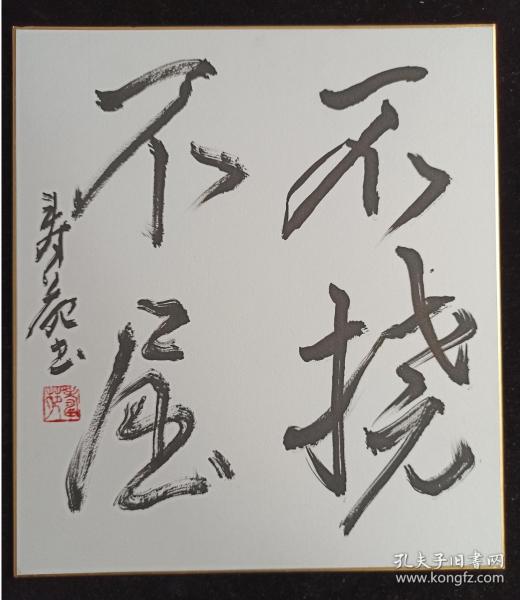 不挠
不屈
寿苑书
孔夫子旧书网
www.kongfz.com